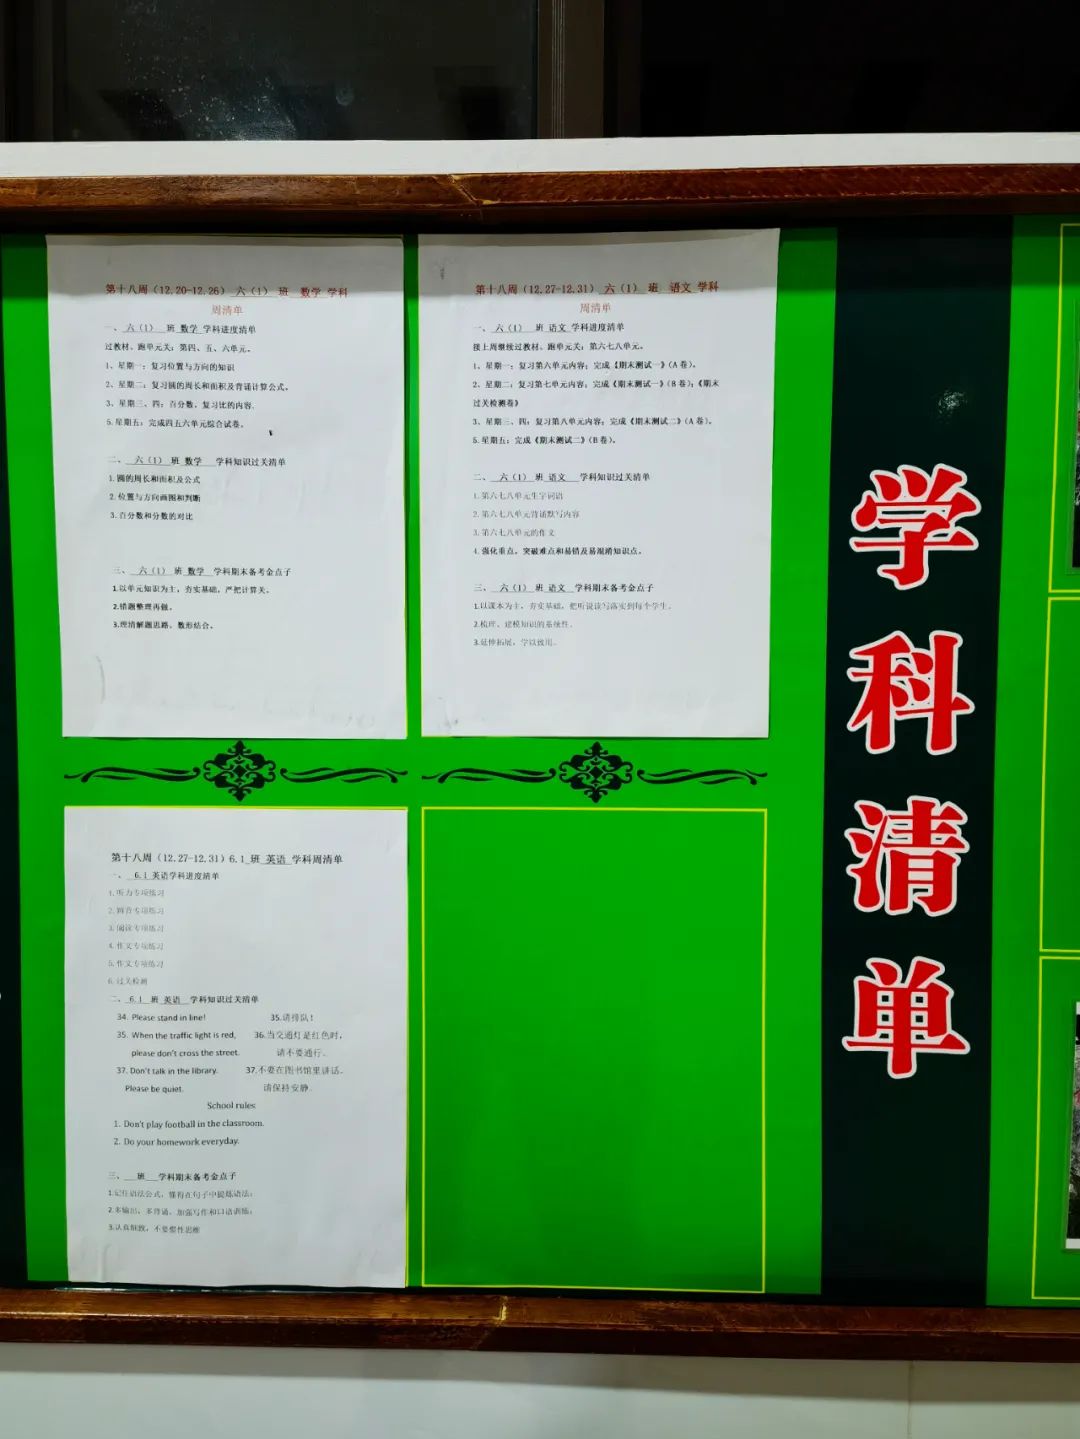 第十八周（12.20-12.26） 六（1） 班 数学 学科
周清单
一、 六（1） 班 数学 学科进度清单
过教材、跑单元关：第四、五、六单元。
1、星期一：复习位置与方向的知识
2、星期二：复习圆的周长和面积及背诵计算公式。
3、星期三、四：百分数、复习比的内容.
5.星期五：完成四五六单元综合试卷。
二、 六（1） 班 数学 学科知识过关清单
1.圆的周长和面积及公式
2.位置与方向画图和判断
3.百分数和分数的对比
三、 六（1） 班 数学 学科期末备考金点子
1.以单元知识为主，夯实基础，严把计算关。
2.错题整理再做。
3.理清解题思路，数形结合。
第十八周（12.27-12.31） 六（1） 班 语文 学科
周清单
一、 六（1） 班 语文 学科进度清单
接上周继续过教材、跑单元关：第六七八单元。
1、星期一：复习第六单元内容；完成《期末测试一》（A卷）。
2、星期二：复习第七单元内容；完成《期末测试一》（B卷）；《期末
过关检测卷》
3、星期三、四：复习第八单元内容；完成《期末测试二》（A卷）。
5.星期五：完成《期末测试二》（B卷）。
二、 六（1） 班 语文 学科知识过关清单
1.第六七八单元生字词语
2.第六七八单元背诵默写内容
3.第六七八单元的作文
4.强化重点，突破难点和易错及易混淆知识点。
三、 六（1） 班 语文 学科期末备考金点子
1.以课本为主，夯实基础，把听说读写落实到每个学生。
2.梳理、建模知识的系统性。
3.延伸拓展，学以致用。
第十八周（12.27-12.31）6.1 班 英语 学科周清单
一、 6.1 英语学科进度清单
1.听力专项练习
2.辩音专项练习
3.阅读专项练习
4.作文专项练习
5.作文专项练习
6.过关检测
二、 6.1 班 英语 学科知识过关清单
34. Please stand in line! 35.请排队！
35. When the traffic light is red, 36.当交通灯是红色时，
please don't cross the street. 请不要通行。
37. Don't talk in the library. 37.不要在图书馆里讲话。
Please be quiet. 请保持安静。
School rules
1. Don't play football in the classroom.
2. Do your homework everyday.
三、 班 学科期末备考金点子
1.记住语法公式，懂得在句子中提炼语法；
2.多输出，多背诵，加强写作和口语训练；
3.认真细致，不要惯性思维
学科清单